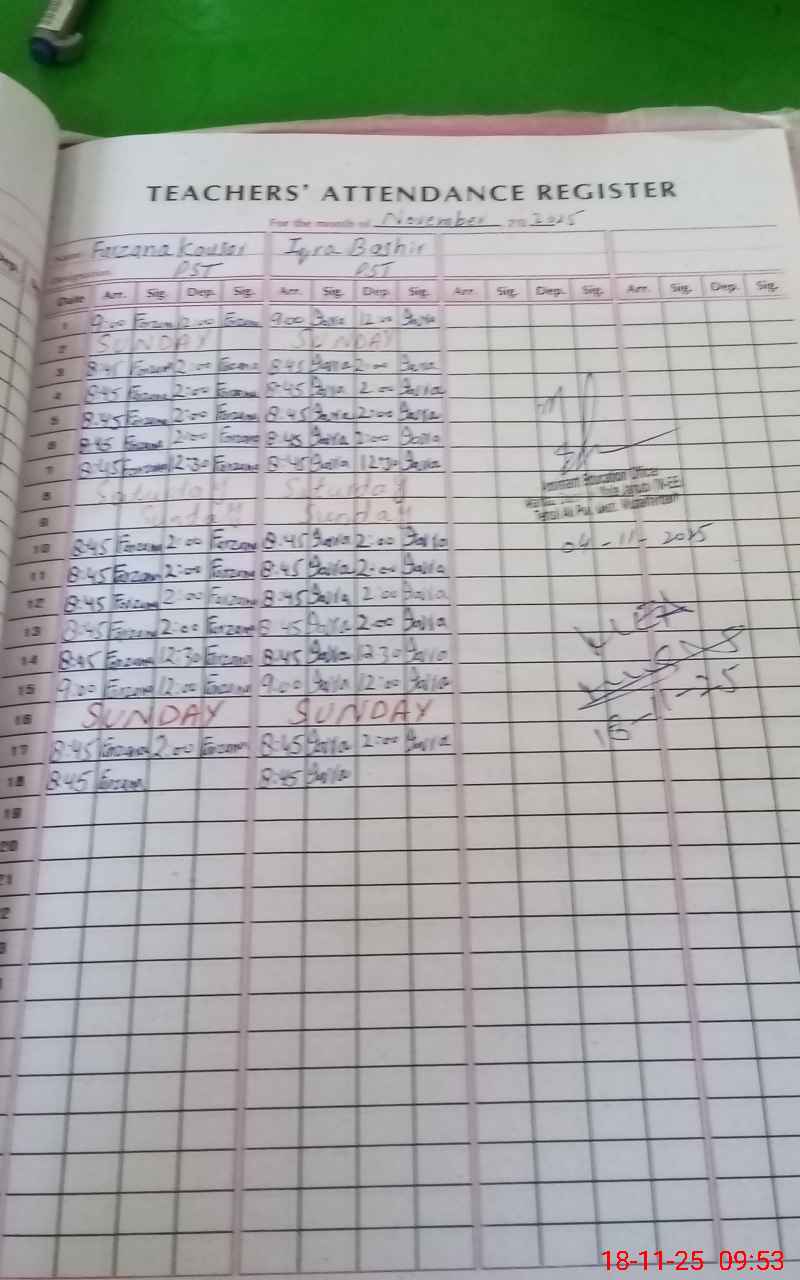 TEACHERS' ATTENDANCE REGISTER
For the month of November 2025
Name Farzana Kousar Iqra Bashir
Designation PST PST
Date Arr. Sig. Dep. Sig. Arr. Sig. Dep. Sig. Arr. Sig. Dep. Sig. Arr. Sig. Dep. Sig.
1 9:00 Farzana 12:00 Farzana 9:00 Iqra 12:00 Iqra
2 SUNDAY SUNDAY
3 8:45 Farzana 2:00 Farzana 8:45 Iqra 2:00 Iqra
4 8:45 Farzana 2:00 Farzana 8:45 Iqra 2:00 Iqra
5 8:45 Farzana 2:00 Farzana 8:45 Iqra 2:00 Iqra
6 8:45 Farzana 2:00 Farzana 8:45 Iqra 2:00 Iqra
7 8:45 Farzana 12:30 Farzana 8:45 Iqra 12:30 Iqra
8 Saturday Saturday
9 Sunday Sunday
Assistant Education Officer
10 8:45 Farzana 2:00 Farzana 8:45 Iqra 2:00 Iqra
04-11-2025
11 8:45 Farzana 2:00 Farzana 8:45 Iqra 2:00 Iqra
12 8:45 Farzana 2:00 Farzana 8:45 Iqra 2:00 Iqra
13 8:45 Farzana 2:00 Farzana 8:45 Iqra 2:00 Iqra
14 8:45 Farzana 12:30 Farzana 8:45 Iqra 12:30 Iqra
15 9:00 Farzana 12:00 Farzana 9:00 Iqra 12:00 Iqra
16 SUNDAY SUNDAY
17 8:45 Farzana 2:00 Farzana 8:45 Iqra 2:00 Iqra
18 8:45 Farzana 8:45 Iqra
19
20
21
18-11-25 09:53